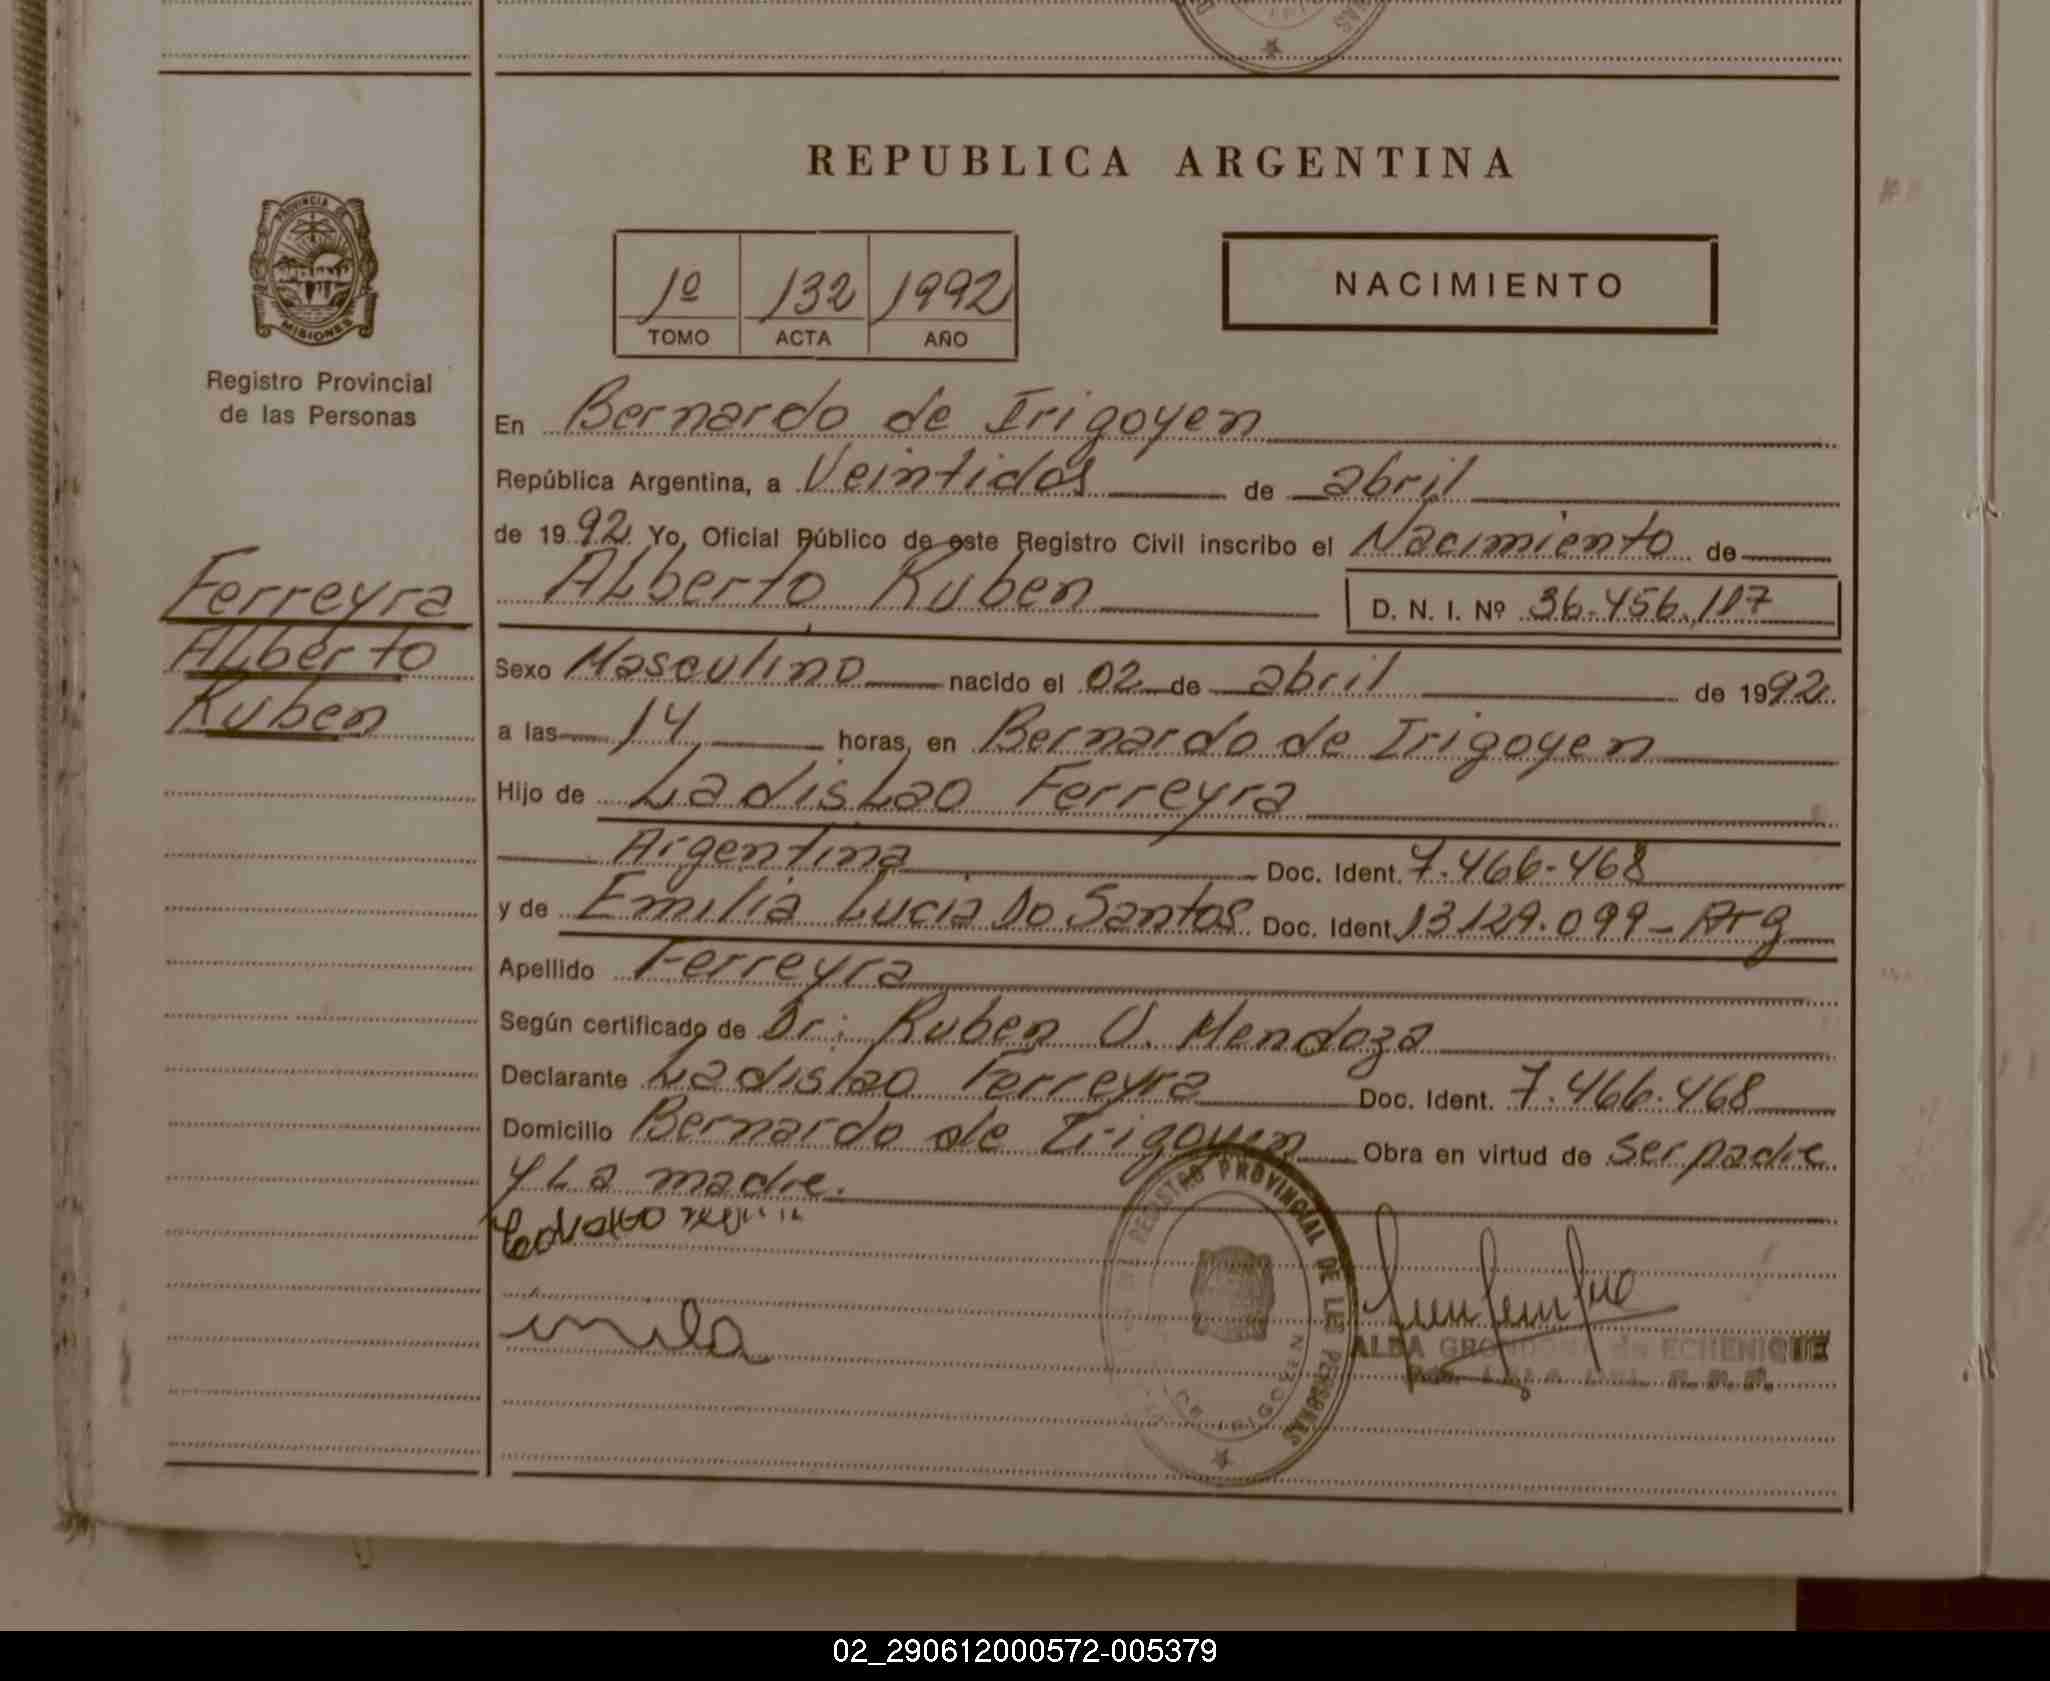 REPUBLICA ARGENTINA
PROVINCIA DE
MISIONES
Registro Provincial
de las Personas
1º 132 1992
TOMO ACTA AÑO
NACIMIENTO
En Bernardo de Irigoyen
República Argentina, a Veintidos de abril
de 1992 Yo, Oficial Público de este Registro Civil inscribo el Nacimiento de
Alberto Ruben D. N. I. Nº 36.456.117
Ferreyra
Alberto
Ruben
Sexo Masculino nacido el 02 de abril de 1992
a las 14 horas, en Bernardo de Irigoyen
Hijo de Ladislao Ferreyra
Argentina Doc. Ident. 7.466.468
y de Emilia Lucia Do Santos Doc. Ident. 13129.099 - Arg
Apellido Ferreyra
Según certificado de Dr: Ruben U. Mendoza
Declarante Ladislao Ferreyra Doc. Ident. 7.466.468
Domicilio Bernardo de Irigoyen Obra en virtud de ser padre
y La madre.
REGISTRO PROVINCIAL DE LAS PERSONAS
DE IRIGOYEN
ALBA GRONDONA de ECHENIQUE
02_290612000572-005379